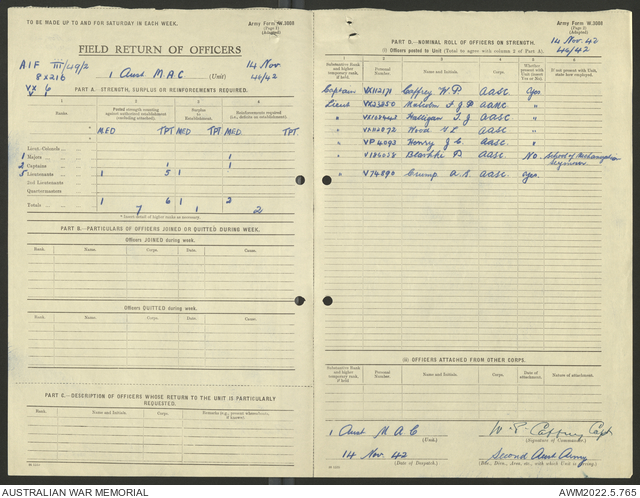 TO BE MADE UP TO AND FOR SATURDAY IN EACH WEEK.
Army Form W.3008
(Page 1)
(Adapted)
FIELD RETURN OF OFFICERS
AIF III/49/2
8 X 216
VX 6
1 Aust M.A.C. (Unit)
14 Nov
46/42
PART A.—STRENGTH, SURPLUS OR REINFORCEMENTS REQUIRED.
Ranks
Posted strength counting against authorized establishment (excluding attached).
Surplus to Establishment.
Reinforcements required (i.e., deficits on establishment).
1 2 3 4
MED TPT MED TPT MED TPT
Lieut-Colonels
1 Majors 1
2 Captains 1 1
5 Lieutenants 1 5 1
2nd Lieutenants
Quartermasters
Totals 1 6 1 2
7 1 2
* Insert detail of higher ranks as necessary.
PART B.—PARTICULARS OF OFFICERS JOINED OR QUITTED DURING WEEK.
Officers JOINED during week.
Rank. Name. Corps. Date. Cause.
Officers QUITTED during week.
Rank. Name. Corps. Date. Cause.
PART C.—DESCRIPTION OF OFFICERS WHOSE RETURN TO THE UNIT IS PARTICULARLY REQUESTED.
Rank. Name and Initials. Corps. Remarks (e.g., present whereabouts, if known).
Army Form W.3008
(Page 2)
(Adapted)
14 Nov 42
46/42
PART D.—NOMINAL ROLL OF OFFICERS ON STRENGTH.
(i) Officers posted to Unit (Total to agree with column 2 of Part A).
1 2 3 4 5 6
Substantive Rank and higher temporary rank, if held.
Personal Number.
Name and Initials.
Corps.
Whether present with Unit (insert Yes or No).
If not present with Unit, state how employed.
Captain VX112171 Caffrey W.P. AASC Yes
Lieut Malcolm F J B AASC "
" Halligan T. J AASC "
" Wood AASC "
" VP4093 Henry J C. AASC "
" V186028 AASC No School of Mechanization Seymour
" V74890 Crump A.S. AASC Yes
(ii) OFFICERS ATTACHED FROM OTHER CORPS.
Substantive Rank and higher temporary rank, if held.
Personal Number.
Name and Initials.
Corps.
Date of attachment.
Nature of attachment.
1 Aust M A C (Unit.)
W. P. Caffrey Capt
(Signature of Commander.)
14 Nov. 42
(Date of Despatch.)
Second Aust Army
(Bde., Divn., Area, etc., with which Unit is serving.)
AUSTRALIAN WAR MEMORIAL
AWM2022.5.765